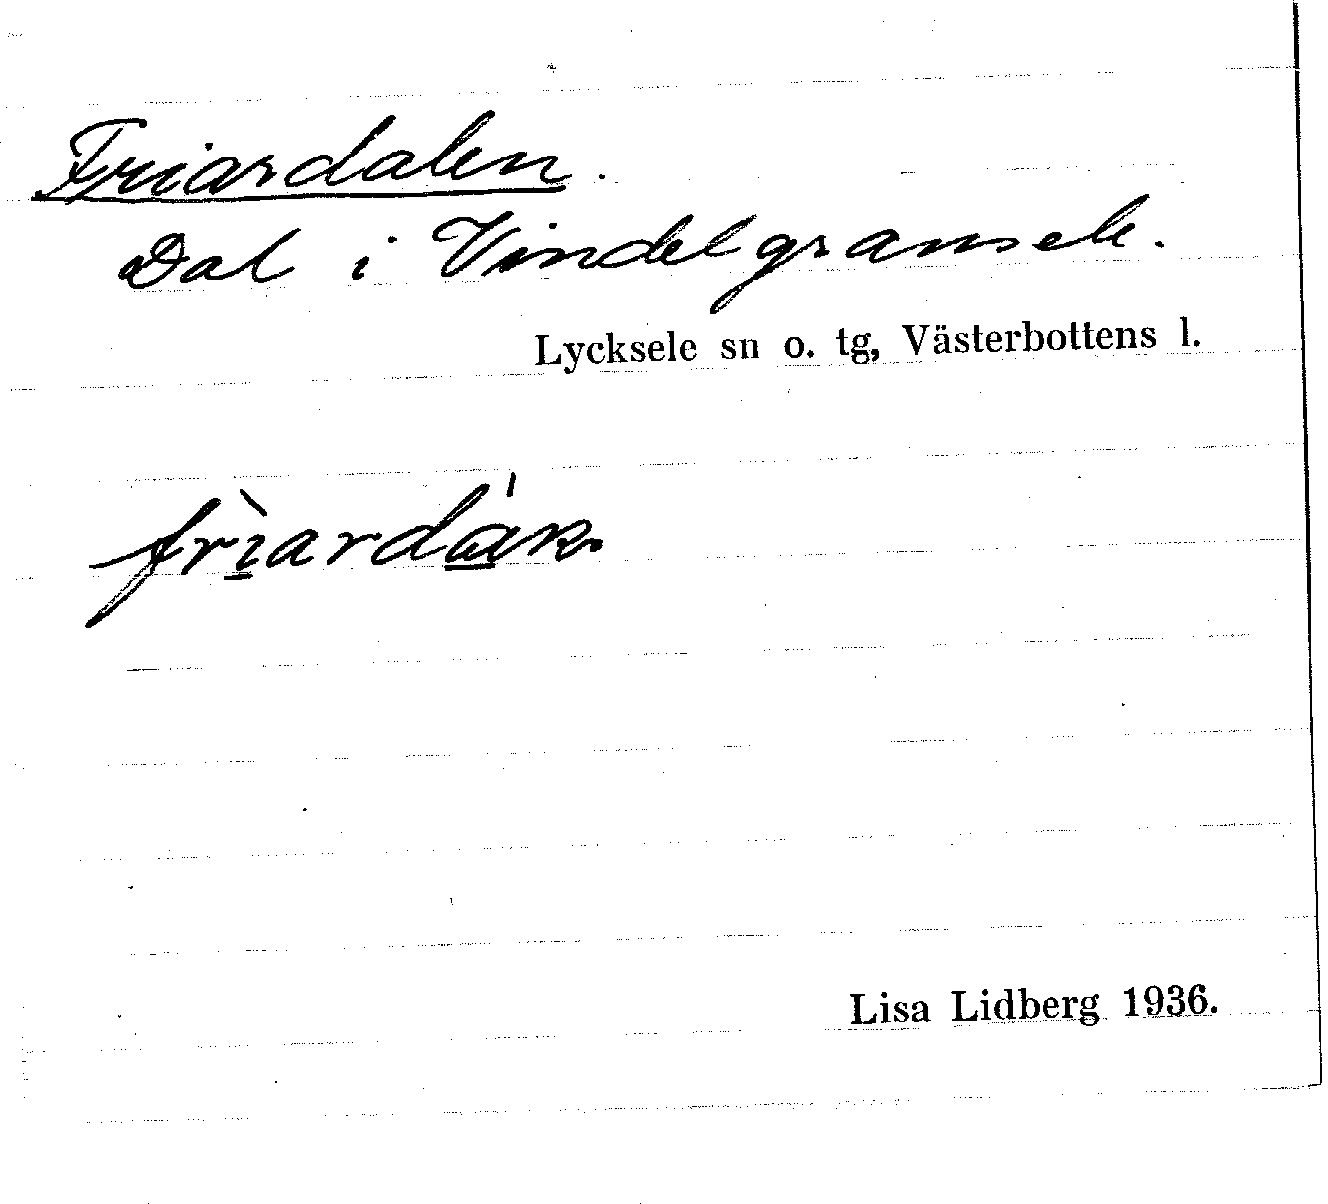 Friardalen.
Dal i Vindelgransele.
Lycksele sn o. tg, Västerbottens l.
Lisa Lidberg 1936.